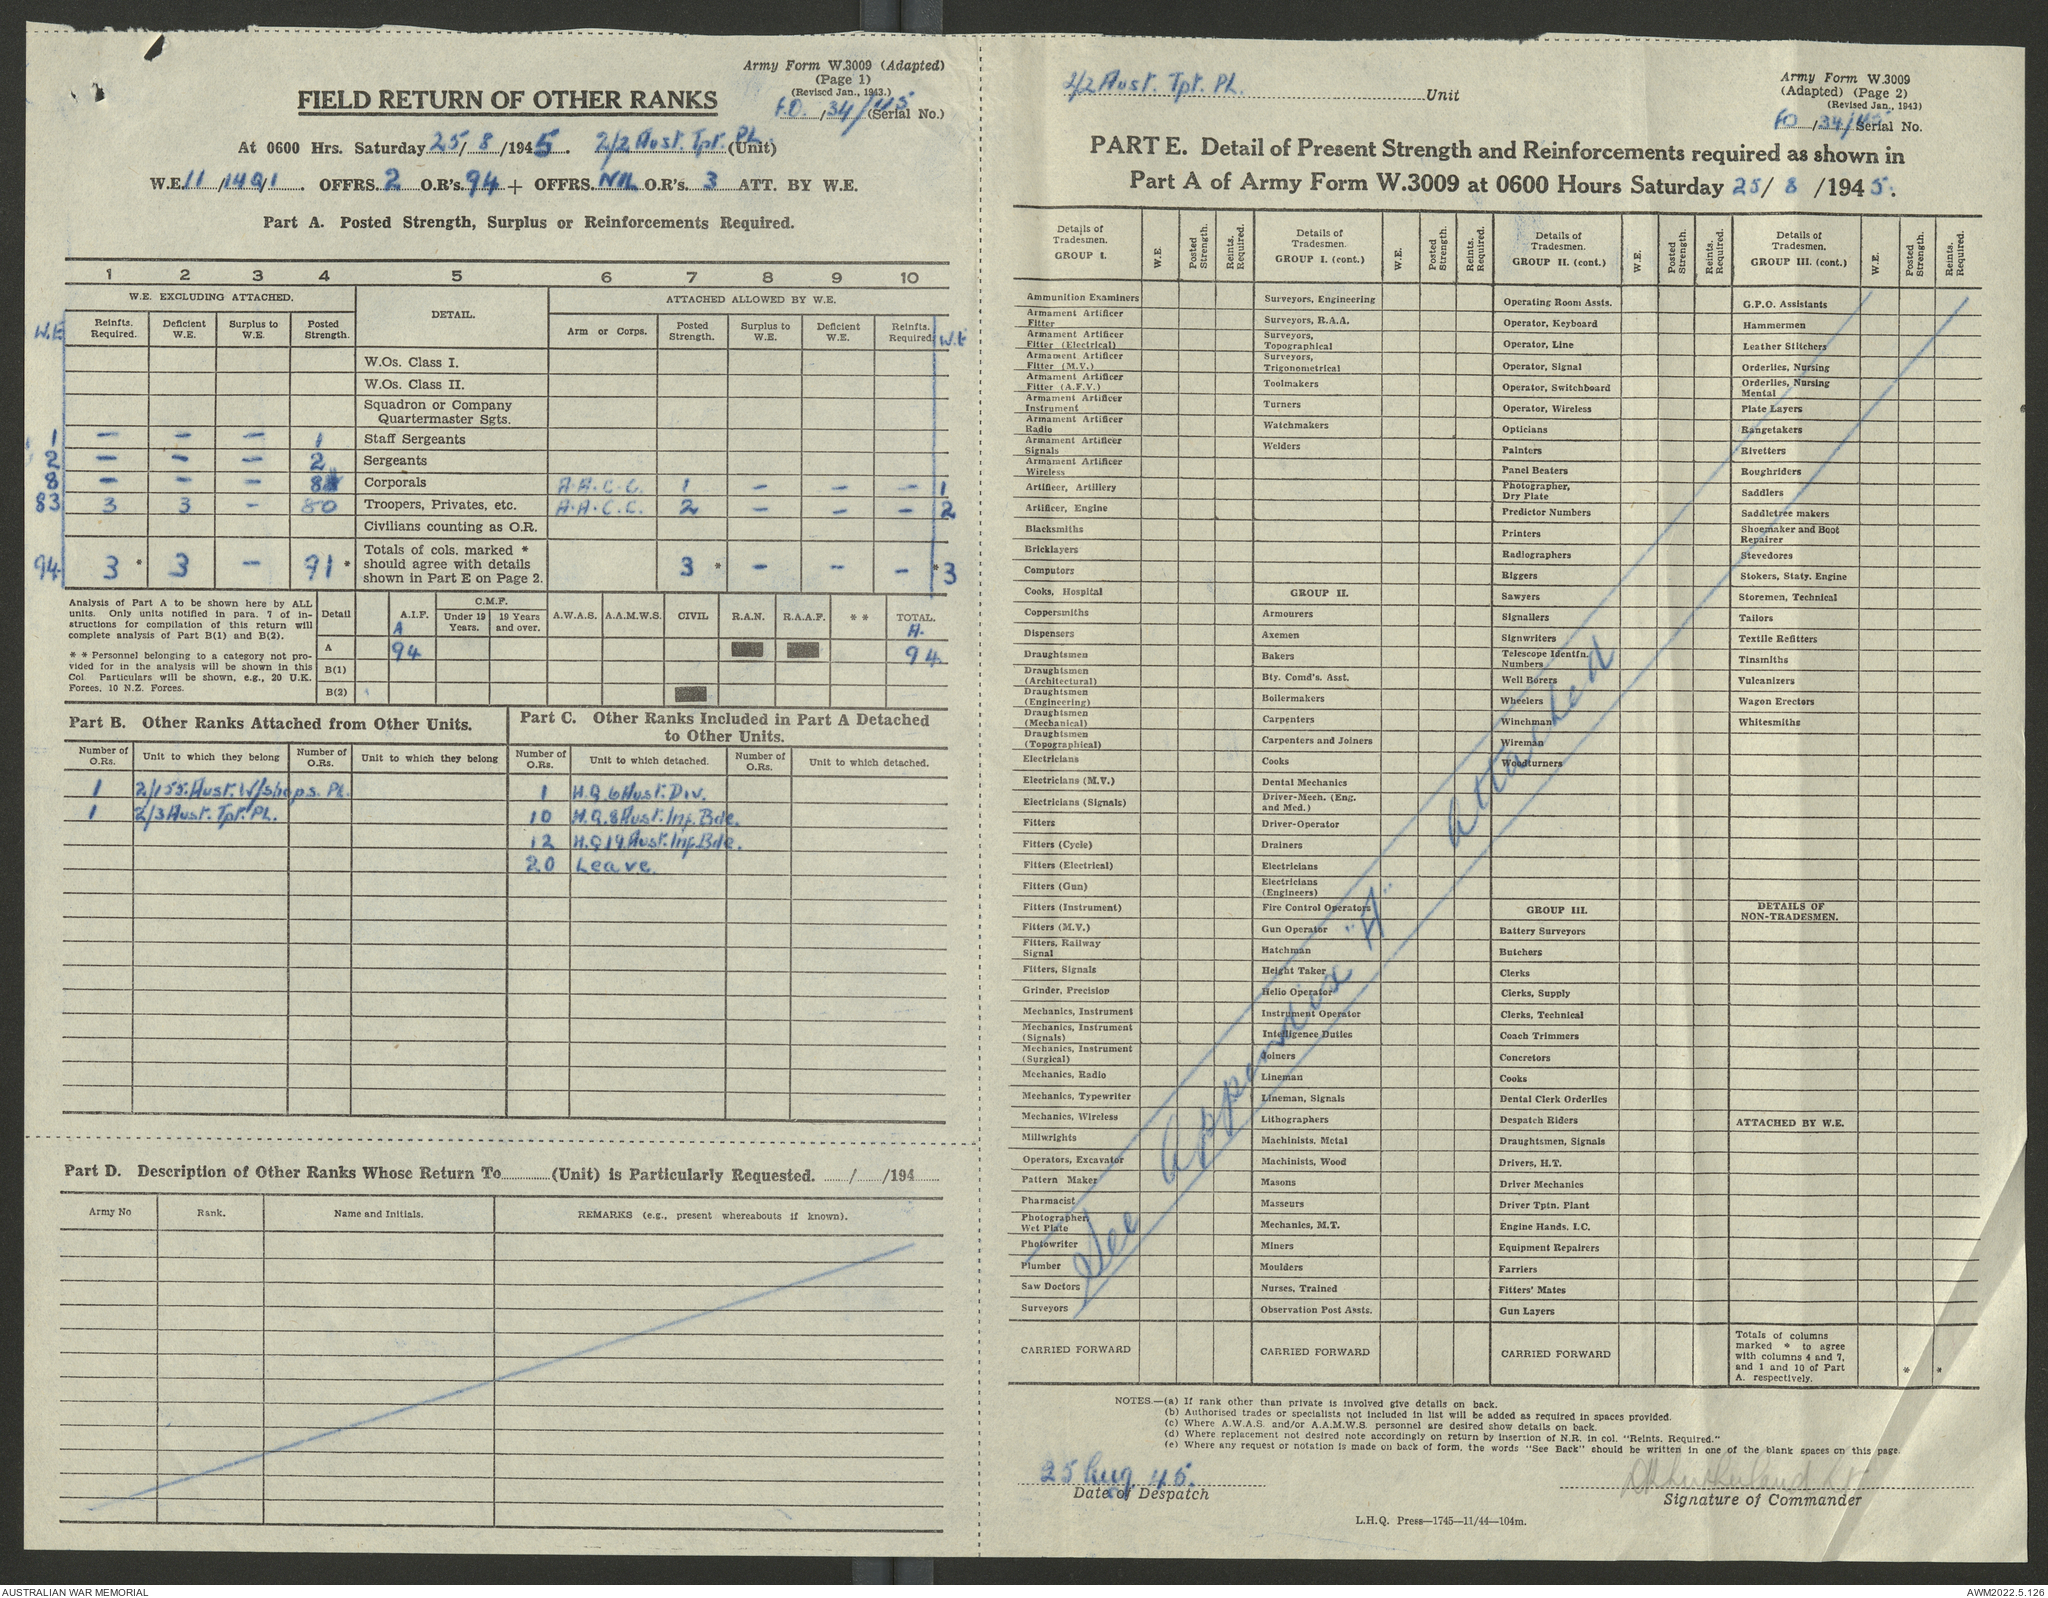 Army Form W.3009 (Adapted)
(Page 1)
(Revised Jan., 1943.)
FIELD RETURN OF OTHER RANKS
F.O. /34/45 (Serial No.)
At 0600 Hrs. Saturday 25/ 8 /1945. 2/2 Aust. Tpt. Pl. (Unit)
W.E. 11 /149/1 OFFRS. 2 O.R's. 94 + OFFRS. NIL O.R's. 3 ATT. BY W.E.
Part A. Posted Strength, Surplus or Reinforcements Required.
1 2 3 4 5 6 7 8 9 10
W.E. EXCLUDING ATTACHED. DETAIL. ATTACHED ALLOWED BY W.E.
W.E. Reinfts. Required. Deficient W.E. Surplus to W.E. Posted Strength. Arm or Corps. Posted Strength. Surplus to W.E. Deficient W.E. Reinfts. Required. W.E
W.Os. Class I.
W.Os. Class II.
Squadron or Company
Quartermaster Sgts.
1 — — — 1 Staff Sergeants
2 — — — 2 Sergeants
8 — — — 8 Corporals A.A.C.C. 1 — — — 1
83 3 3 — 80 Troopers, Privates, etc. A.A.C.C. 2 — — — 2
Civilians counting as O.R.
94 3 * 3 — 91 * Totals of cols. marked * should agree with details shown in Part E on Page 2. 3 * — — — * 3
Analysis of Part A to be shown here by ALL
units. Only units notified in para. 7 of in-
structions for compilation of this return will
complete analysis of Part B(1) and B(2).
* * Personnel belonging to a category not pro-
vided for in the analysis will be shown in this
Col. Particulars will be shown, e.g., 20 U.K.
Forces, 10 N.Z. Forces.
Detail A.I.F. C.M.F. Under 19 Years. 19 Years and over. A.W.A.S. A.A.M.W.S. CIVIL R.A.N. R.A.A.F. * * TOTAL.
A A.
A 94 94
B(1)
B(2)
Part B. Other Ranks Attached from Other Units.
Number of O.Rs. Unit to which they belong Number of O.Rs. Unit to which they belong
1 2/155 Aust. W/Shops. Pl.
1 2/3 Aust. Tpt. Pl.
Part C. Other Ranks Included in Part A Detached
to Other Units.
Number of O.Rs. Unit to which detached. Number of O.Rs. Unit to which detached.
1 H.Q. 6 Aust. Div.
10 H.Q. 8 Aust. Inf. Bde.
12 H.Q 19 Aust. Inf. Bde.
20 Leave
Part D. Description of Other Ranks Whose Return To (Unit) is Particularly Requested. / /194
Army No Rank. Name and Initials. REMARKS (e.g., present whereabouts if known).
2/2 Aust. Tpt. Pl. Unit
Army Form W.3009
(Adapted) (Page 2)
(Revised Jan., 1943)
FO /34/45 Serial No.
PART E. Detail of Present Strength and Reinforcements required as shown in
Part A of Army Form W.3009 at 0600 Hours Saturday 25/ 8 /1945.
Details of Tradesmen. GROUP I. W.E. Posted Strength. Reints. Required.
Ammunition Examiners
Armament Artificer
Fitter
Armament Artificer
Fitter (Electrical)
Armament Artificer
Fitter (M.V.)
Armament Artificer
Fitter (A.F.V.)
Armament Artificer
Instrument
Armament Artificer
Radio
Armament Artificer
Signals
Armament Artificer
Wireless
Artificer, Artillery
Artificer, Engine
Blacksmiths
Bricklayers
Computors
Cooks, Hospital
Coppersmiths
Dispensers
Draughtsmen
Draughtsmen
(Architectural)
Draughtsmen
(Engineering)
Draughtsmen
(Mechanical)
Draughtsmen
(Topographical)
Electricians
Electricians (M.V.)
Electricians (Signals)
Fitters
Fitters (Cycle)
Fitters (Electrical)
Fitters (Gun)
Fitters (Instrument)
Fitters (M.V.)
Fitters, Railway
Signal
Fitters, Signals
Grinder, Precision
Mechanics, Instrument
Mechanics, Instrument
(Signals)
Mechanics, Instrument
(Surgical)
Mechanics, Radio
Mechanics, Typewriter
Mechanics, Wireless
Millwrights
Operators, Excavator
Pattern Maker
Pharmacist
Photographer,
Wet Plate
Photowriter
Plumber
Saw Doctors
Surveyors
CARRIED FORWARD
Details of Tradesmen. GROUP I. (cont.) W.E. Posted Strength. Reints. Required.
Surveyors, Engineering
Surveyors, R.A.A.
Surveyors,
Topographical
Surveyors,
Trigonometrical
Toolmakers
Turners
Watchmakers
Welders
GROUP II.
Armourers
Axemen
Bakers
Bty. Comd's. Asst.
Boilermakers
Carpenters
Carpenters and Joiners
Cooks
Dental Mechanics
Driver-Mech. (Eng.
and Med.)
Driver-Operator
Drainers
Electricians
Electricians
(Engineers)
Fire Control Operators
Gun Operator
Hatchman
Height Taker
Helio Operator
Instrument Operator
Intelligence Duties
Joiners
Lineman
Lineman, Signals
Lithographers
Machinists, Metal
Machinists, Wood
Masons
Masseurs
Mechanics, M.T.
Miners
Moulders
Nurses, Trained
Observation Post Assts.
CARRIED FORWARD
Details of Tradesmen. GROUP II. (cont.) W.E. Posted Strength. Reints. Required.
Operating Room Assts.
Operator, Keyboard
Operator, Line
Operator, Signal
Operator, Switchboard
Operator, Wireless
Opticians
Painters
Panel Beaters
Photographer,
Dry Plate
Predictor Numbers
Printers
Radiographers
Riggers
Sawyers
Signallers
Signwriters
Telescope Identfn.
Numbers
Well Borers
Wheelers
Winchman
Wireman
Woodturners
GROUP III.
Battery Surveyors
Butchers
Clerks
Clerks, Supply
Clerks, Technical
Coach Trimmers
Concretors
Cooks
Dental Clerk Orderlies
Despatch Riders
Draughtsmen, Signals
Drivers, H.T.
Driver Mechanics
Driver Tptn. Plant
Engine Hands, I.C.
Equipment Repairers
Farriers
Fitters' Mates
Gun Layers
CARRIED FORWARD
Details of Tradesmen. GROUP III. (cont.) W.E. Posted Strength. Reints. Required.
G.P.O. Assistants
Hammermen
Leather Stitchers
Orderlies, Nursing
Orderlies, Nursing
Mental
Plate Layers
Rangetakers
Rivetters
Roughriders
Saddlers
Saddletree makers
Shoemaker and Boot
Repairer
Stevedores
Stokers, Staty. Engine
Storemen, Technical
Tailors
Textile Refitters
Tinsmiths
Vulcanizers
Wagon Erectors
Whitesmiths
DETAILS OF
NON-TRADESMEN.
ATTACHED BY W.E.
Totals of columns
marked * to agree
with columns 4 and 7,
and 1 and 10 of Part
A. respectively. * *
See Appendix "A" attached
NOTES.—(a) If rank other than private is involved give details on back.
(b) Authorised trades or specialists not included in list will be added as required in spaces provided.
(c) Where A.W.A.S. and/or A.A.M.W.S. personnel are desired show details on back.
(d) Where replacement not desired note accordingly on return by insertion of N.R. in col. "Reints. Required."
(e) Where any request or notation is made on back of form, the words "See Back" should be written in one of the blank spaces on this page.
25 Aug 45.
Date of Despatch
Sutherland Lt
Signature of Commander
L.H.Q. Press—1745—11/44—104m.
AUSTRALIAN WAR MEMORIAL
AWM2022.5.126